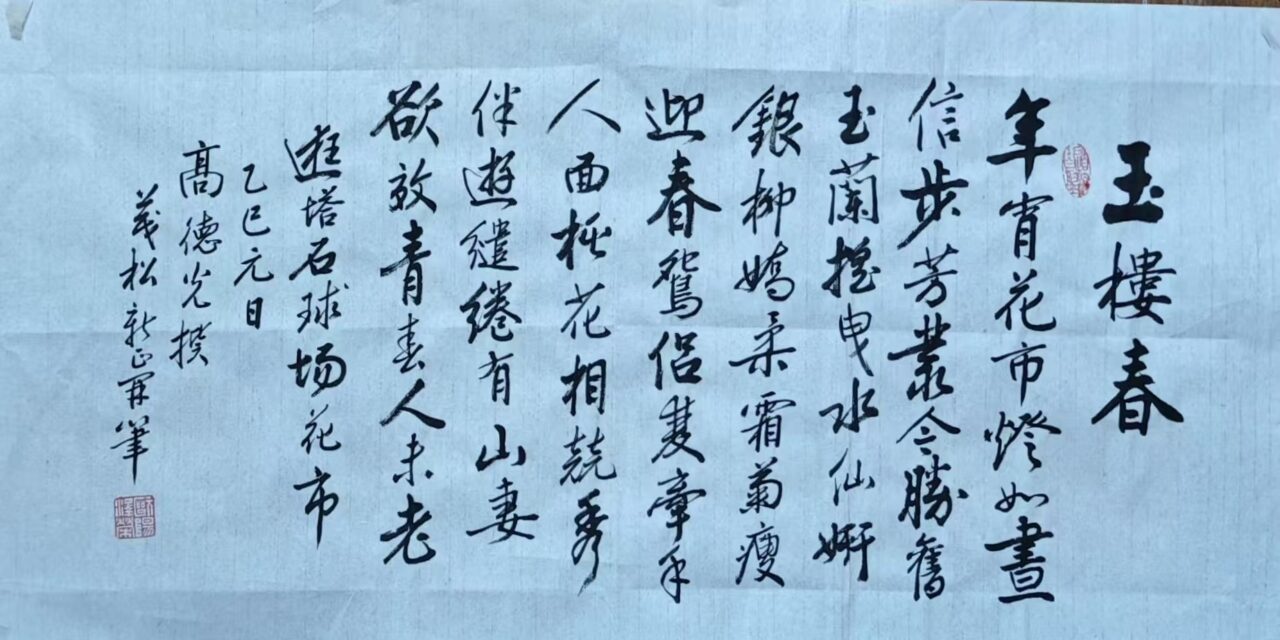 玉樓春
年宵花市燈如晝
信步芳叢今勝舊
玉蘭搖曳水仙妍
銀柳嬌柔霜菊瘦
迎春鴛侶雙牽手
人面桃花相競秀
伴遊繾綣有山妻
欲效青春人未老
遊塔石球场花市
乙巳元日
高德光撰
松新正開筆